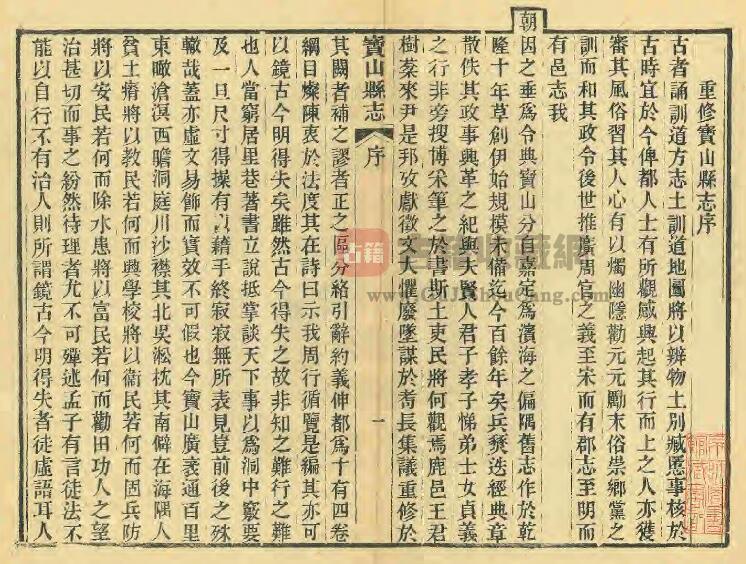 重修寶山縣志序
古者誦訓道方志土訓道地圖將以辨物土別臧慝事核於
古時宜於今俾都人士有所觀感興起其行而上之人亦獲
審其風俗習其人心有以燭幽隱勸元元勵末俗崇鄉黨之
訓而和其政令後世推廣周官之義至宋而有郡志至明而
有邑志我
朝因之垂爲令典寶山分自嘉定爲濱海之偏隅舊志作於乾
隆十年草創伊始規模未備迄今百餘年矣兵燹迭經典章
散佚其政事興革之紀與夫賢人君子孝子悌弟士女貞義
之行非旁搜博采筆之於書斯土吏民將何觀焉鹿邑王君
樹棻來尹是邦攷獻徵文大懼廢墜謀於耆長集議重修於
寶山縣志
序
一
其闕者補之謬者正之區分絡引辭約義伸都爲十有四卷
綱目燦陳衷於法度其在詩曰示我周行循覽是編其亦可
以鏡古今明得失矣雖然古今得失之故非知之難行之難
也人當窮居里巷著書立說抵掌談天下事以爲洞中竅要
及一旦尺寸得操有以藉手終寂寂無所表見豈前後之殊
轍哉蓋亦虛文易飾而實效不可假也今寶山廣袤通百里
東瞰滄溟西瞻洞庭川沙襟其北吳淞枕其南僻在海隅人
貧土瘠將以教民若何而興學校將以衞民若何而固兵防
將以安民若何而除水患將以富民若何而勸田功人之望
治甚切而事之紛然待理者尤不可殫述孟子有言徒法不
能以自行不有治人則所謂鏡古今明得失者徒虛語耳人
古籍
www.GujiShouCang.com